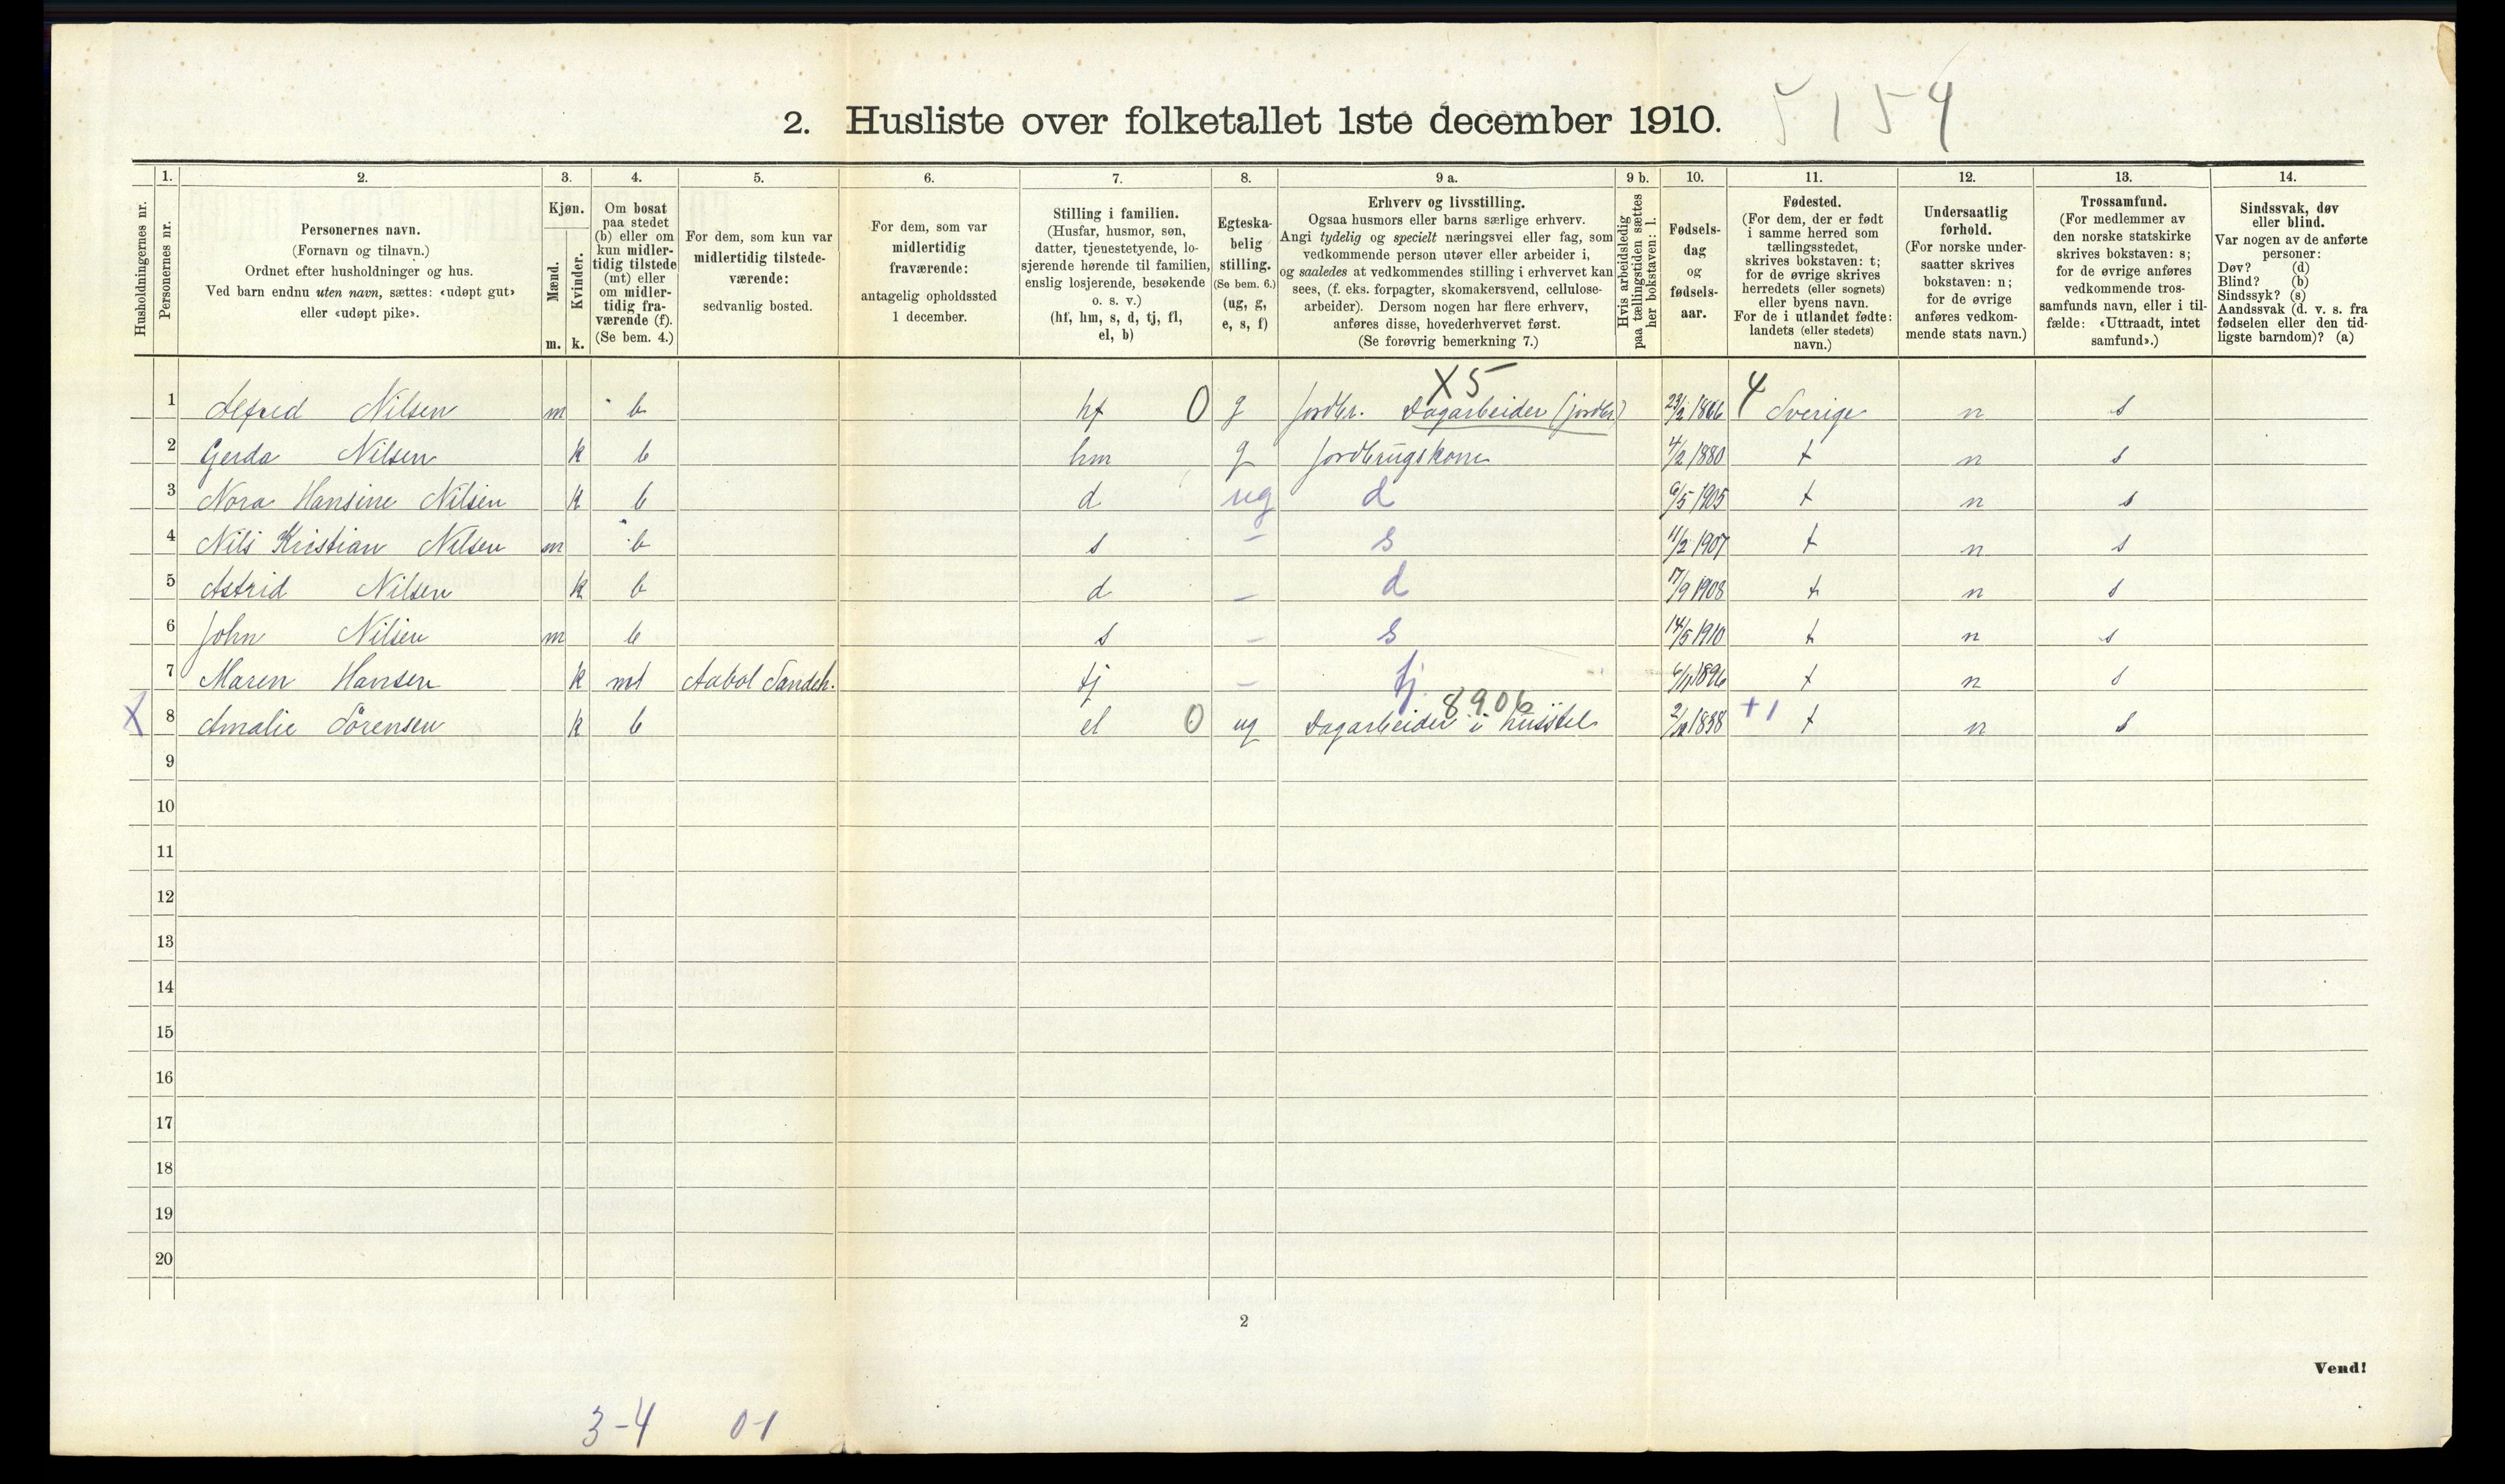 2. Husliste over folketallet 1ste december 1910. 5154
1. 2. 3. 4. 5. 6. 7. 8. 9 a. 9 b. 10. 11. 12. 13. 14.
Husholdningernes nr.
Personernes nr.
Personernes navn.
(Fornavn og tilnavn.)
Ordnet efter husholdninger og hus.
Ved barn endnu uten navn, sættes: «udøpt gut»
eller «udøpt pike».
Kjøn.
Mænd.
Kvinder.
m. k.
Om bosat
paa stedet
(b) eller om
kun midler-
tidig tilstede
(mt) eller
om midler-
tidig fra-
værende (f).
(Se bem. 4.)
For dem, som kun var
midlertidig tilstede-
værende:
sedvanlig bosted.
For dem, som var
midlertidig
fraværende:
antagelig opholdssted
1 december.
Stilling i familien.
(Husfar, husmor, søn,
datter, tjenestetyende, lo-
sjerende hørende til familien,
enslig losjerende, besøkende
o. s. v.)
(hf, hm, s, d, tj, fl,
el, b)
Egteska-
belig
stilling.
(Se bem. 6.)
(ug, g,
e, s, f)
Erhverv og livsstilling.
Ogsaa husmors eller barns særlige erhverv.
Angi tydelig og specielt næringsvei eller fag, som
vedkommende person utøver eller arbeider i,
og saaledes at vedkommendes stilling i erhvervet kan
sees, (f. eks. forpagter, skomakersvend, cellulose-
arbeider). Dersom nogen har flere erhverv,
anføres disse, hovederhvervet først.
(Se forøvrig bemerkning 7.)
Hvis arbeidsledig
paa tællingstiden sættes
her bokstaven: l.
Fødsels-
dag
og
fødsels-
aar.
Fødested.
(For dem, der er født
i samme herred som
tællingsstedet,
skrives bokstaven: t;
for de øvrige skrives
herredets (eller sognets)
eller byens navn.
For de i utlandet fødte:
landets (eller stedets)
navn.)
Undersaatlig
forhold.
(For norske under-
saatter skrives
bokstaven: n;
for de øvrige
anføres vedkom-
mende stats navn.)
Trossamfund.
(For medlemmer av
den norske statskirke
skrives bokstaven: s;
for de øvrige anføres
vedkommende tros-
samfunds navn, eller i til-
fælde: «Uttraadt, intet
samfund».)
Sindssvak, døv
eller blind.
Var nogen av de anførte
personer:
Døv? (d)
Blind? (b)
Sindssyk? (s)
Aandssvak (d. v. s. fra
fødselen eller den tid-
ligste barndom)? (a)
X5
1 Alfred Nilsen m b hf 0 g Jordbr. Dagarbeider (jordbr) 23/2 1866 4 Sverige n s
2 Gerda Nilsen k b hm g Jordbrugskone 4/2 1880 t n s
3 Nora Hansine Nilsen k b d ug d 6/5 1905 t n s
4 Nils Kristian Nilsen m b s - s 11/2 1907 t n s
5 Astrid Nilsen k b d - d 17/9 1908 t n s
6 John Nilsen m b s - s 14/5 1910 t n s
7 Maren Hansen k mt Aabol Sandeh. tj - tj. 6/11 1896 t n s
8906
X 8 Amalie Sörensen k b el 0 ug Dagarbeider i husstel 1888 +1 t n s
9
10
11
12
13
14
15
16
17
18
19
20
2
Vend!
3-4 0-1